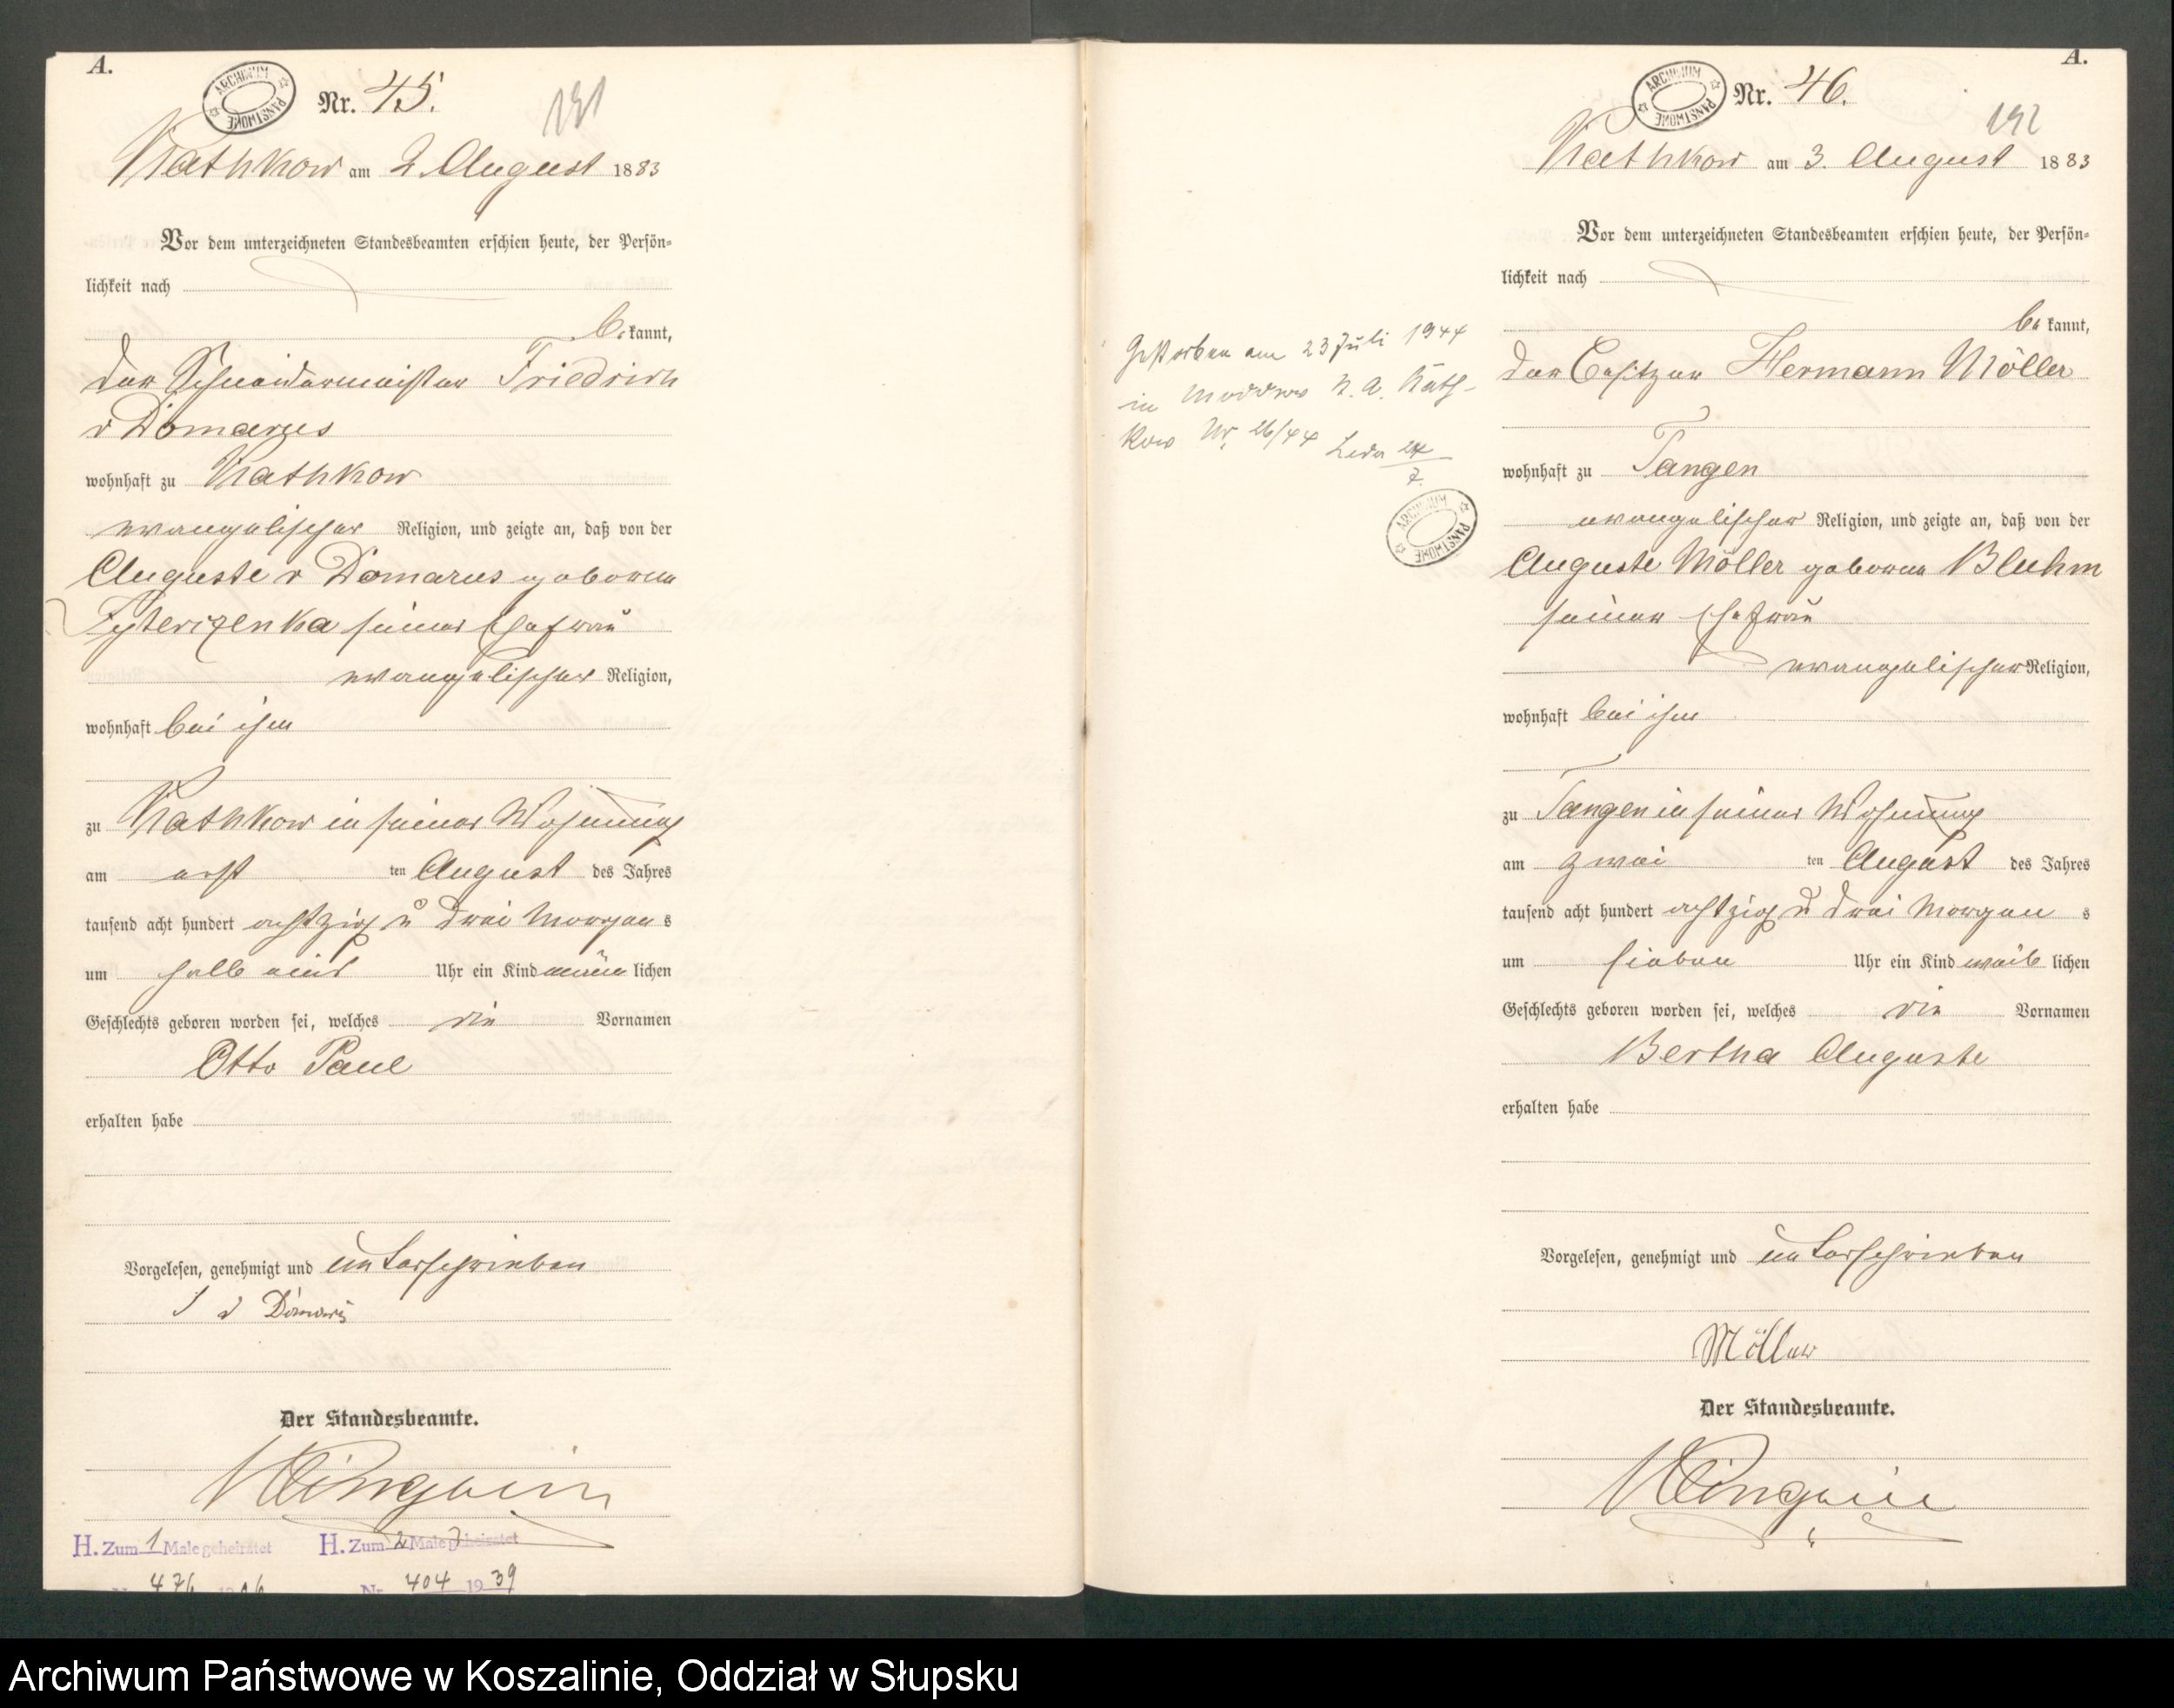 A.
ARCHIWUM PAŃSTWOWE
Nr. 45.
191
Rathkow am 2. August 1883
Vor dem unterzeichneten Standesbeamten erschien heute, der Persön-
lichkeit nach
be kannt,
der Schneidermeister Friedrich
v Domarus
wohnhaft zu Rathkow
evangelischer Religion, und zeigte an, daß von der
Auguste v Domarus geborene
seiner Ehefrau
evangelischer Religion,
wohnhaft bei ihm
zu Rathkow in seiner Wohnung
am erst ten August des Jahres
tausend acht hundert achtzig u drei Morgens
um halb eins Uhr ein Kind männ lichen
Geschlechts geboren worden sei, welches die Vornamen
Otto Paul
erhalten habe
Vorgelesen, genehmigt und unterschrieben
v Domarus
Der Standesbeamte.
H. Zum 1 Male geheiratet H. Zum 2 Male geheiratet
Nr. 404 1939
A.
ARCHIWUM PAŃSTWOWE
Nr. 46.
192
Rathkow am 3. August 1883
Vor dem unterzeichneten Standesbeamten erschien heute, der Persön-
lichkeit nach
be kannt,
der Besitzer Hermann Möller
wohnhaft zu Tangen
evangelischer Religion, und zeigte an, daß von der
Auguste Möller geborene Bluhm
seiner Ehefrau
evangelischer Religion,
wohnhaft bei ihm
zu Tangen in seiner Wohnung
am zwei ten August des Jahres
tausend acht hundert achtzig u drei Morgens
um sieben Uhr ein Kind weib lichen
Geschlechts geboren worden sei, welches die Vornamen
Bertha Auguste
erhalten habe
Vorgelesen, genehmigt und unterschrieben
Möller
Der Standesbeamte.
Gestorben am 23 Juli 1944
in Moddrow St. A. Rath-
kow Nr. 26/44
24/7.
ARCHIWUM PAŃSTWOWE
Archiwum Państwowe w Koszalinie, Oddział w Słupsku